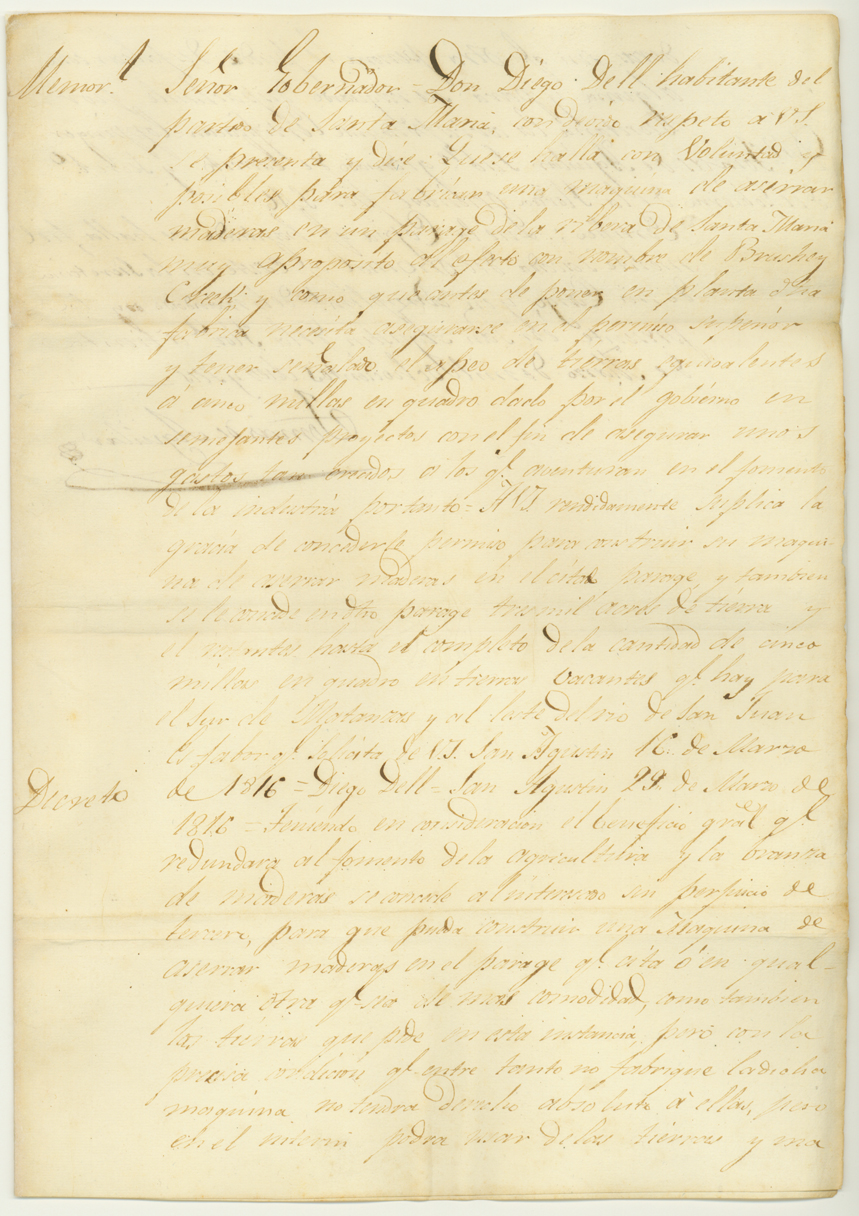 Memor.l Señor Gobernador = Don Diego Dell habitante del
partido de Santa Maria, con devido respeto a V.S.
se presenta y dice: Que se halla con Voluntad y
posibles para fabricar una maquina de aserrar
maderas en un parage de la ribera de Santa Maria
muy aproposito al efecto con nombre de Brushey
Creek: y como que antes de poner en planta dha
fabrica necesita asegurarse en el permiso superior
y tener señalado el apeo de tierras equivalentes
á cinco millas en quadro dado por el gobierno en
semejantes proyectos con el fin de asegurar unos
gastos tan crecidos a los q.e aventuran en el fomento
de la industria por tanto = A V.S. rendidamente suplica la
gracia de concederle permiso para construir su maqui-
na de aserrar maderas en el citado parage, y tambien
se le concede en dho parage tres mil acres de tierra y
el restantes hasta el completo de la cantidad de cinco
millas en quadro en tierras vacantes q.e hay para
el sur de Matanzas y al leste del rio de San Juan
Es fabor q.e solicita de V.S. San Agustin 16 de Marzo
de 1816 = Diego Dell = San Agustin 29 de Marzo de
Decreto 1816 = Teniendo en consideracion el beneficio gral q.e
redundara al fomento de la agricultura y la branza
de maderas se concede al interesado sin perjuicio de
tercero, para que pueda construir una Maquina de
aserrar maderas en el parage q.e cita ó en qual-
quiera otra q.e sia de mas comodidad, como tambien
las tierras que pide en esta instancia, pero con la
precisa condicion q.e entre tanto no fabrique la dicha
maquina no tendra derecho absoluto á ellas, pero
en el interin podra usar de las tierras y ma